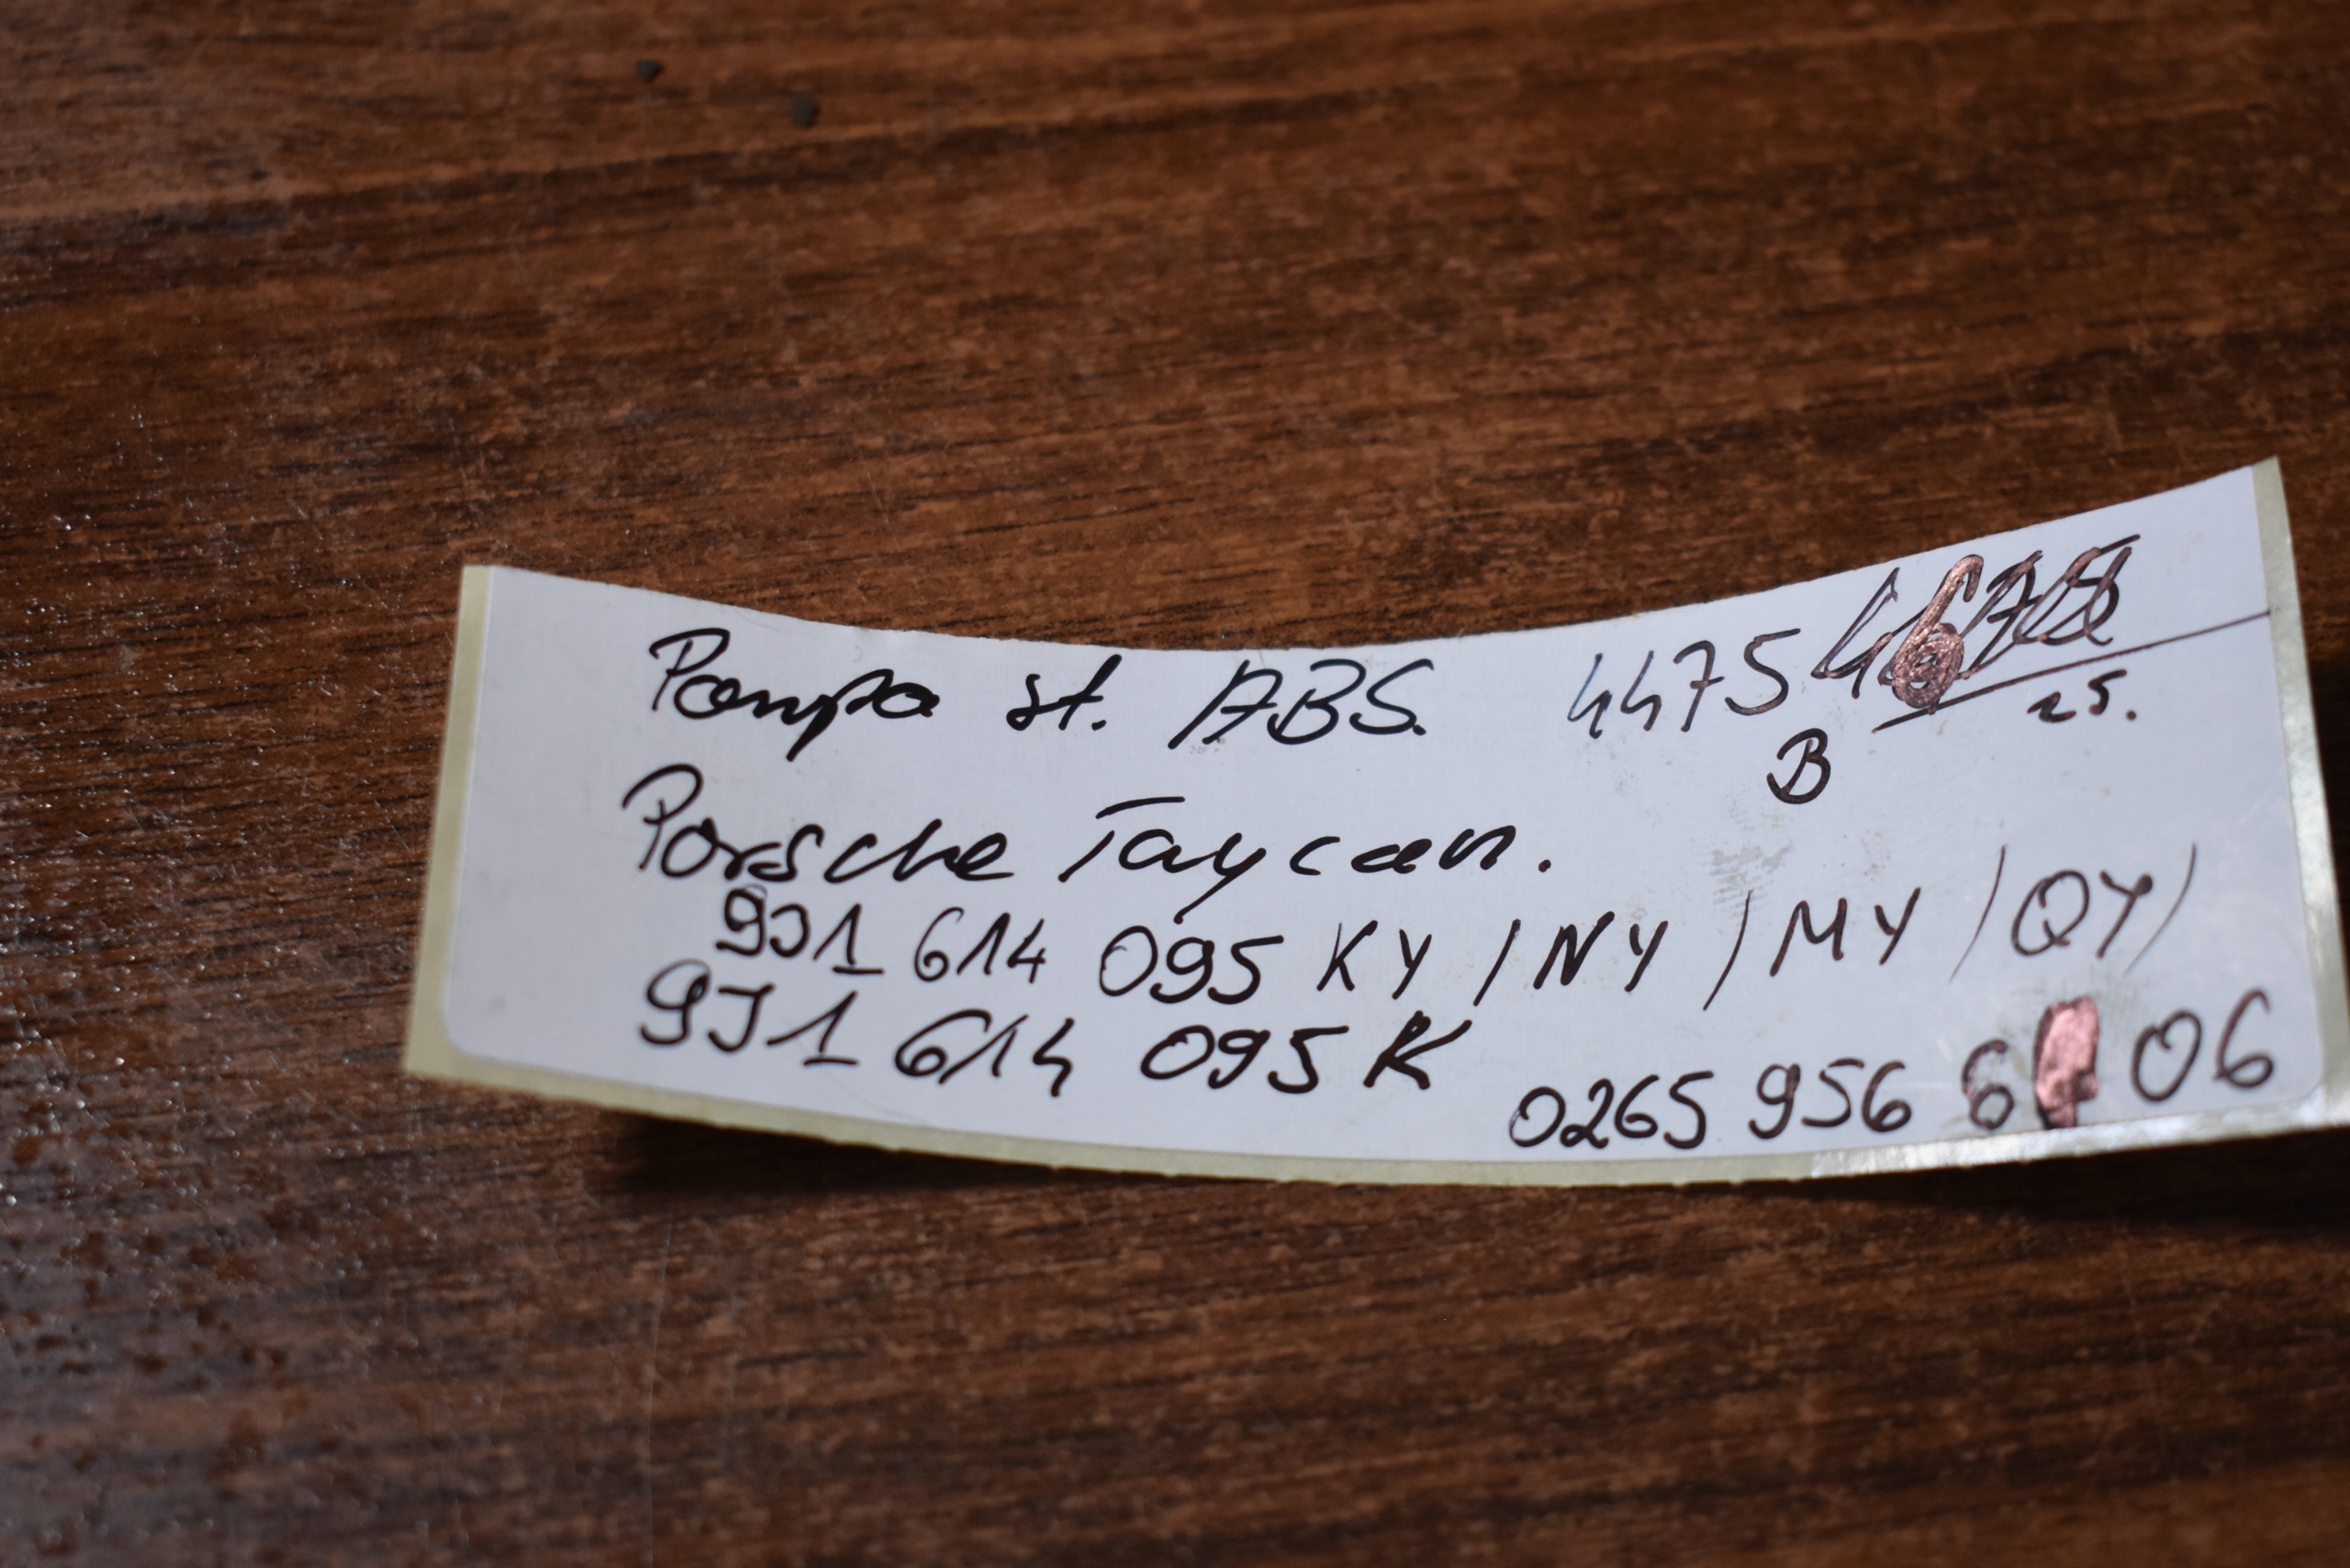 Pompa st. ABS. 4475
25.
B
Porsche Taycan.
9J1 614 095 KY / NY / MY / QY /
9J1 614 095 K
0265 956 6 06